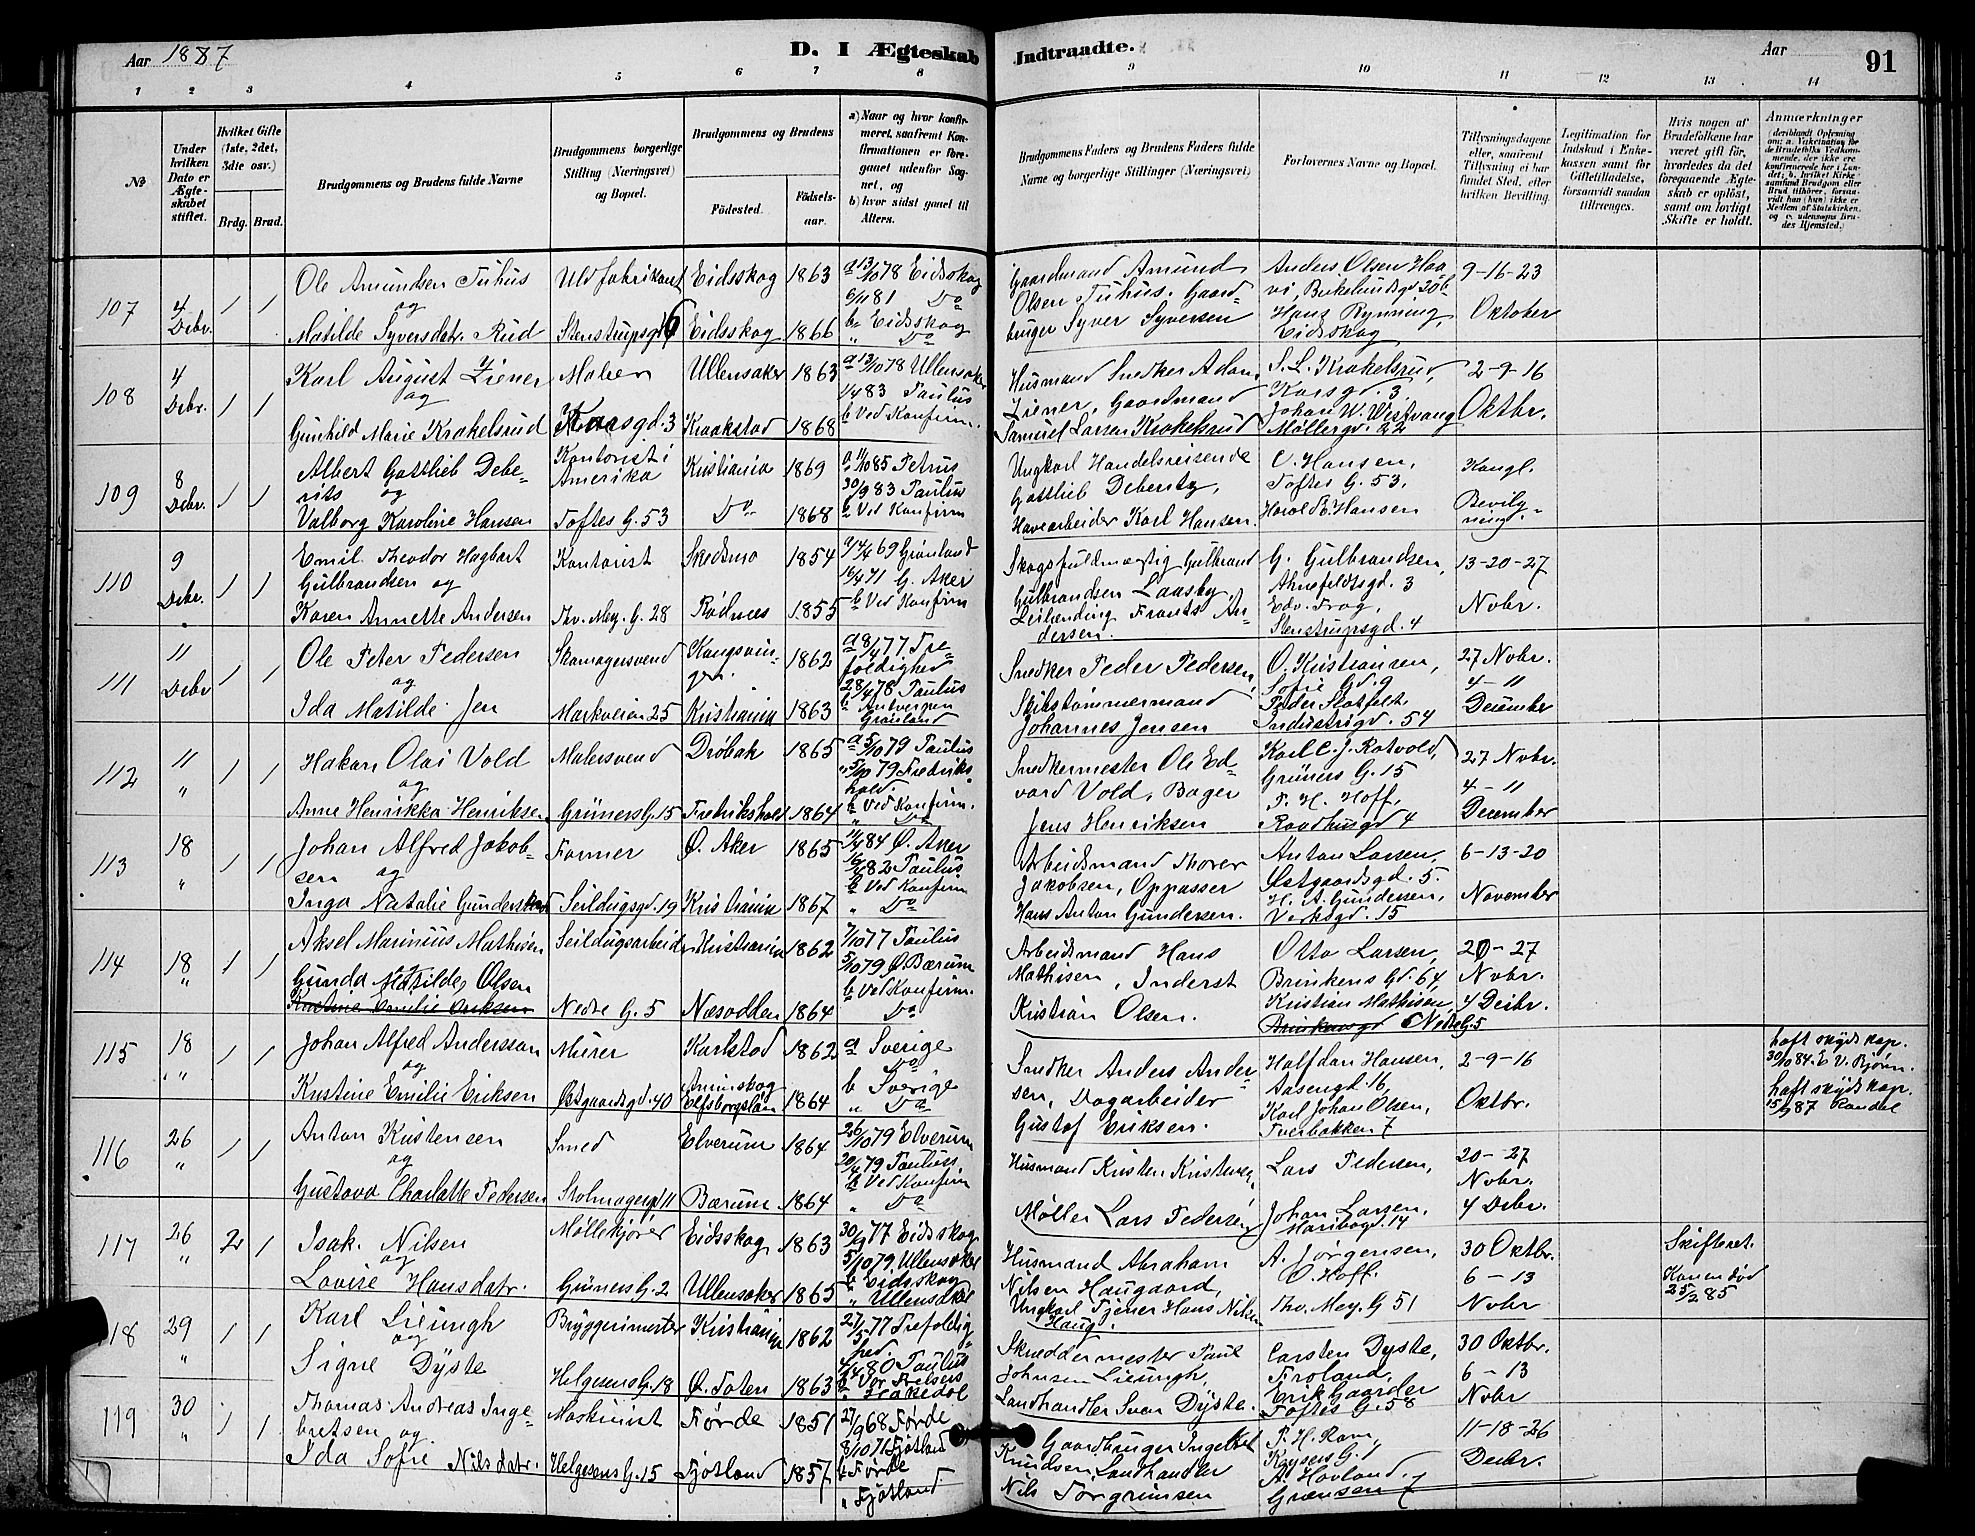 Aar 1887
D. I Ægteskab Indtraadte.
Aar
91
1 2 3 4 5 6 7 8 9 10 11 12 13 14
No
Under hvilken Dato er Ægteskabet stiftet.
Hvilket Gifte (1ste, 2det, 3die osv.)
Brdg. Brud.
Brudgommens og Brudens fulde Navne
Brudgommens borgerlige Stilling (Næringsvei) og Bopæl.
Brudgommens og Brudens
Fødested.
Fødselsaar.
a) Naar og hvor konfirmeret, saafremt Konfirmationen er foregaaet udenfor Sognet, og
b) hvor sidst gaaet til Alters.
Brudgommens Faders og Brudens Faders fulde Navne og borgerlige Stillinger (Næringsvei)
Forlovernes Navne og Bopæl.
Tillysningsdagene eller, saafremt Tillysning ei har fundet Sted, efter hvilken Bevilling.
Legitimation for Indskud i Enkekassen samt for Giftetilladelse, forsaavidt saadan tiltrænges.
Hvis nogen af Brudefolkene har været gift før, hvorledes da det foregaaende Ægteskab er opløst, samt om lovligt Skifte er holdt.
Anmærkninger
(deriblandt Oplysning om: a. Vakcination for de Brudefolks Vedkommende, der ikke ere konfirmerede her i Landet; b. hvilket Kirkesamfund Brudgom eller Brud tilhører, forsaavidt han (hun) ikke er Medlem af Statskirken, og c. udensogns Brudes Hjemsted.)
107 4 Debr. 1 1
Ole Amundsen Tuhus
og
Matilde Syversdatr. Rud
Uldfabrikant
Stenstrupsgd 6
Eidsskog 1863
Eidsskog 1866
a 13/10 78 Eidsskog
6/11 81 Do
b Eidsskog
" Do
Gaardmand Amund
Olsen Tuhus. Gaard-
bruger Syver Syversen
Anders Olsen Haa-
vi, Birkelundsgd 20b
Hans Rynning,
Eidsskog
9-16-23
Oktober
108 4 Debr. 1 1
Karl August Ziener
og
Gunhild Marie Krokelsrud
Maler
Korsgd. 3
Ullensaker 1863
Kraakstad 1868
a 13/10 78 Ullensaker
1/4 83 Paulus
b Ved Konfirm.
Husmand Snedker Adam
Ziener, Gaardmand
Samuel Larsen Krokelsrud
S. L. Krokelsrud,
Korsgd. 3,
Johan W. Westvang
Møllergd. 22
2-9-16
Oktbr.
109 8 Debr. 1 1
Albert Gottlieb Debe-
rits og
Valborg Karoline Hansen
Kontorist i
Amerika
Toftes G. 53
Kristiania 1869
Do 1868
a 11/10 85 Petrus
30/9 83 Paulus
b Ved Konfirm
Ungkarl Handelsreisende
Gottlieb Deberitz,
Havearbeider Karl Hansen.
C. Hansen,
Toftes G. 53,
Harold B. Hansen
Kongl.
Bevilg-
ning.
110 9 Debr. 1 1
Emil Theodor Hagbart
Gulbrandsen og
Karen Annette Andersen
Kontorist
Thv. Mey. G. 28
Skedsmo 1854
Rødnes 1855
a 14/4 69 Grønland
16/4 71 G. Aker
b Ved Konfirm
Skogsfuldmægtig Gulbrand
Gulbrandsen Laasby
Leilænding Frants An-
dersen.
G. Gulbrandsen,
Ahnefeldtsgd. 3
Edv. Frog,
Stenstrupsgd. 4
13-20-27
Nobr.
111 11 Debr 1 1
Ole Peter Pedersen
og
Ida Matilde Jen
Skomagersvend
Markveien 25
Kongsvin-
ger. 1862
Kristiania 1863
a 8/4 77 Tre-
foldighed
28/4 78 Paulus
b Antverpen
Grønland
Snedker Peder Pedersen,
Skibstømmermand
Johannes Jensen
O. Kristiansen,
Sofie Gd. 9
Peder Slotfelt
Industrigd. 54
27 Nobr.
4-11
December
112 11 " 1 1
Hakon Olai Vold
og
Anne Henrikka Henriksen
Malersvend
Grüners G. 15
Drøbak 1865
Fredrikshald 1864
a 5/10 79 Paulus
" 5/10 79 Fredriks-
hald.
b Ved Konfirm.
" Do
Snedkermester Ole Ed-
vard Vold, Bager
Jens Henriksen
Karl C. J. Rotvold,
Grüners G. 15
P. H. Hoff,
Raadhusgd 4
27 Nobr.
4-11
December
113 18 " 1 1
Johan Alfred Jakob-
sen og
Inga Natalie Gundersen
Former
Seildugsgd. 19
Ø. Aker 1865
Kristiania 1867
a 11/4 84 Ø. Aker
16/4 82 Paulus
b Ved Konfirm
" Do
Arbeidsmand Thorer
Jakobsen, Oppasser
Hans Anton Gundersen.
Anton Larsen,
Østgaardsgd. 5.
H. A. Gundersen,
Verksgd. 15
6-13-20
November
114 18 " 1 1
Aksel Marinius Mathisen
og
Gunda Matilde Olsen
Kristine Emilie Eriksen
Seildugsarbeider
Nedre G. 5
Kristiania 1862
Næsodden 1864
7/10 77 Paulus
5/10 79 Ø. Bærum
b Ved Konfirm.
Do
Arbeidsmand Hans
Mathisen, Inderst
Kristian Olsen.
Otto Larsen,
Brinkens Gd. 64,
Kristian Mathisen,
Brinkensgd Nedre G. 5
20-27
Nobr.
4 Decbr.
115 18 " 1 1
Johan Alfred Andersson
og
Kristine Emilie Eriksen
Murer
Østgaardsgd. 40
Karlstad 1862
Aminskog
Elfsborgslän 1864
a Sverige
Do
b Sverige
" Do
Snedker Anders Ander-
sen, Dagarbeider
Gustof Eriksen.
Halfdan Hansen,
Aasengd. 16,
Karl Johan Olsen,
Tverbakken 7
2-9-16
Oktbr.
haft skyds kop.
30/10 84. E. V. Bjørn.
haft skyds kop.
15/9 87 Randal
116 26 " 1 1
Anton Kristensen
og
Gustava Charlotte Pedersen
Smed
Stolmagergd 11
Elverum 1864
Bærum 1864
26/10 79 Elverum
20/4 79 Paulus
b Ved Konfirm
" Do
Husmand Kristen Kristensen,
Møller Lars Pedersen
Lars Pedersen,
Johan Larsen,
Maribogd. 14
20-27
Nobr.
4 Debr.
117 26 " 2 1
Isak Nilsen
og
Lovise Hansdatr.
Møllekjører
Grüners G. 2
Eidsskog 1863
Ullensaker 1865
30/9 77 Eidsskog
5/10 79 Ullensaker
b Eidsskog
" Ullensaker
Husmand Abraham
Nilsen Haugaard,
Ungkarl Tjener Hans Nilsen
Haug.
A. Jørgensen,
O. Hoff.
Thv. Mey. G 51
30 Oktbr.
6-13
Nobr
Skifteret.
Konen død
25/2 85
118 29 " 1 1
Karl Lieungh
og
Signe Dyste
Bryggerimester
Helgesens G. 18
Kristiania 1862
Ø. Toten 1863
27/5 77 Trefoldig-
hed
4/4 80 Paulus
b Vor Frelsers
Skræddermester Paul
Johnsen Lieungh,
Landhandler Svan Dyste.
Carsten Dyste,
Froland,
Erik Gaarder
Toftes G. 58
30 Oktbr.
6-13
Nobr
119 30 " 1 1
Thomas Andreas Inge-
bretsen og
Ida Sofie Nilsdatr.
Maskinist
Helgesens G. 15
Førde 1851
Fjotland 1857
27/9 68 Førde
8/10 71 Fjotland
b Førde
" Fjotland
Gaardbruger Ingebret
Knudsen, Landhandler
Nils Torgrimsen
P. H. Ram,
Keysers G. 1
A. Hovland,
Grænsen 7
11-18-26
Decbr.